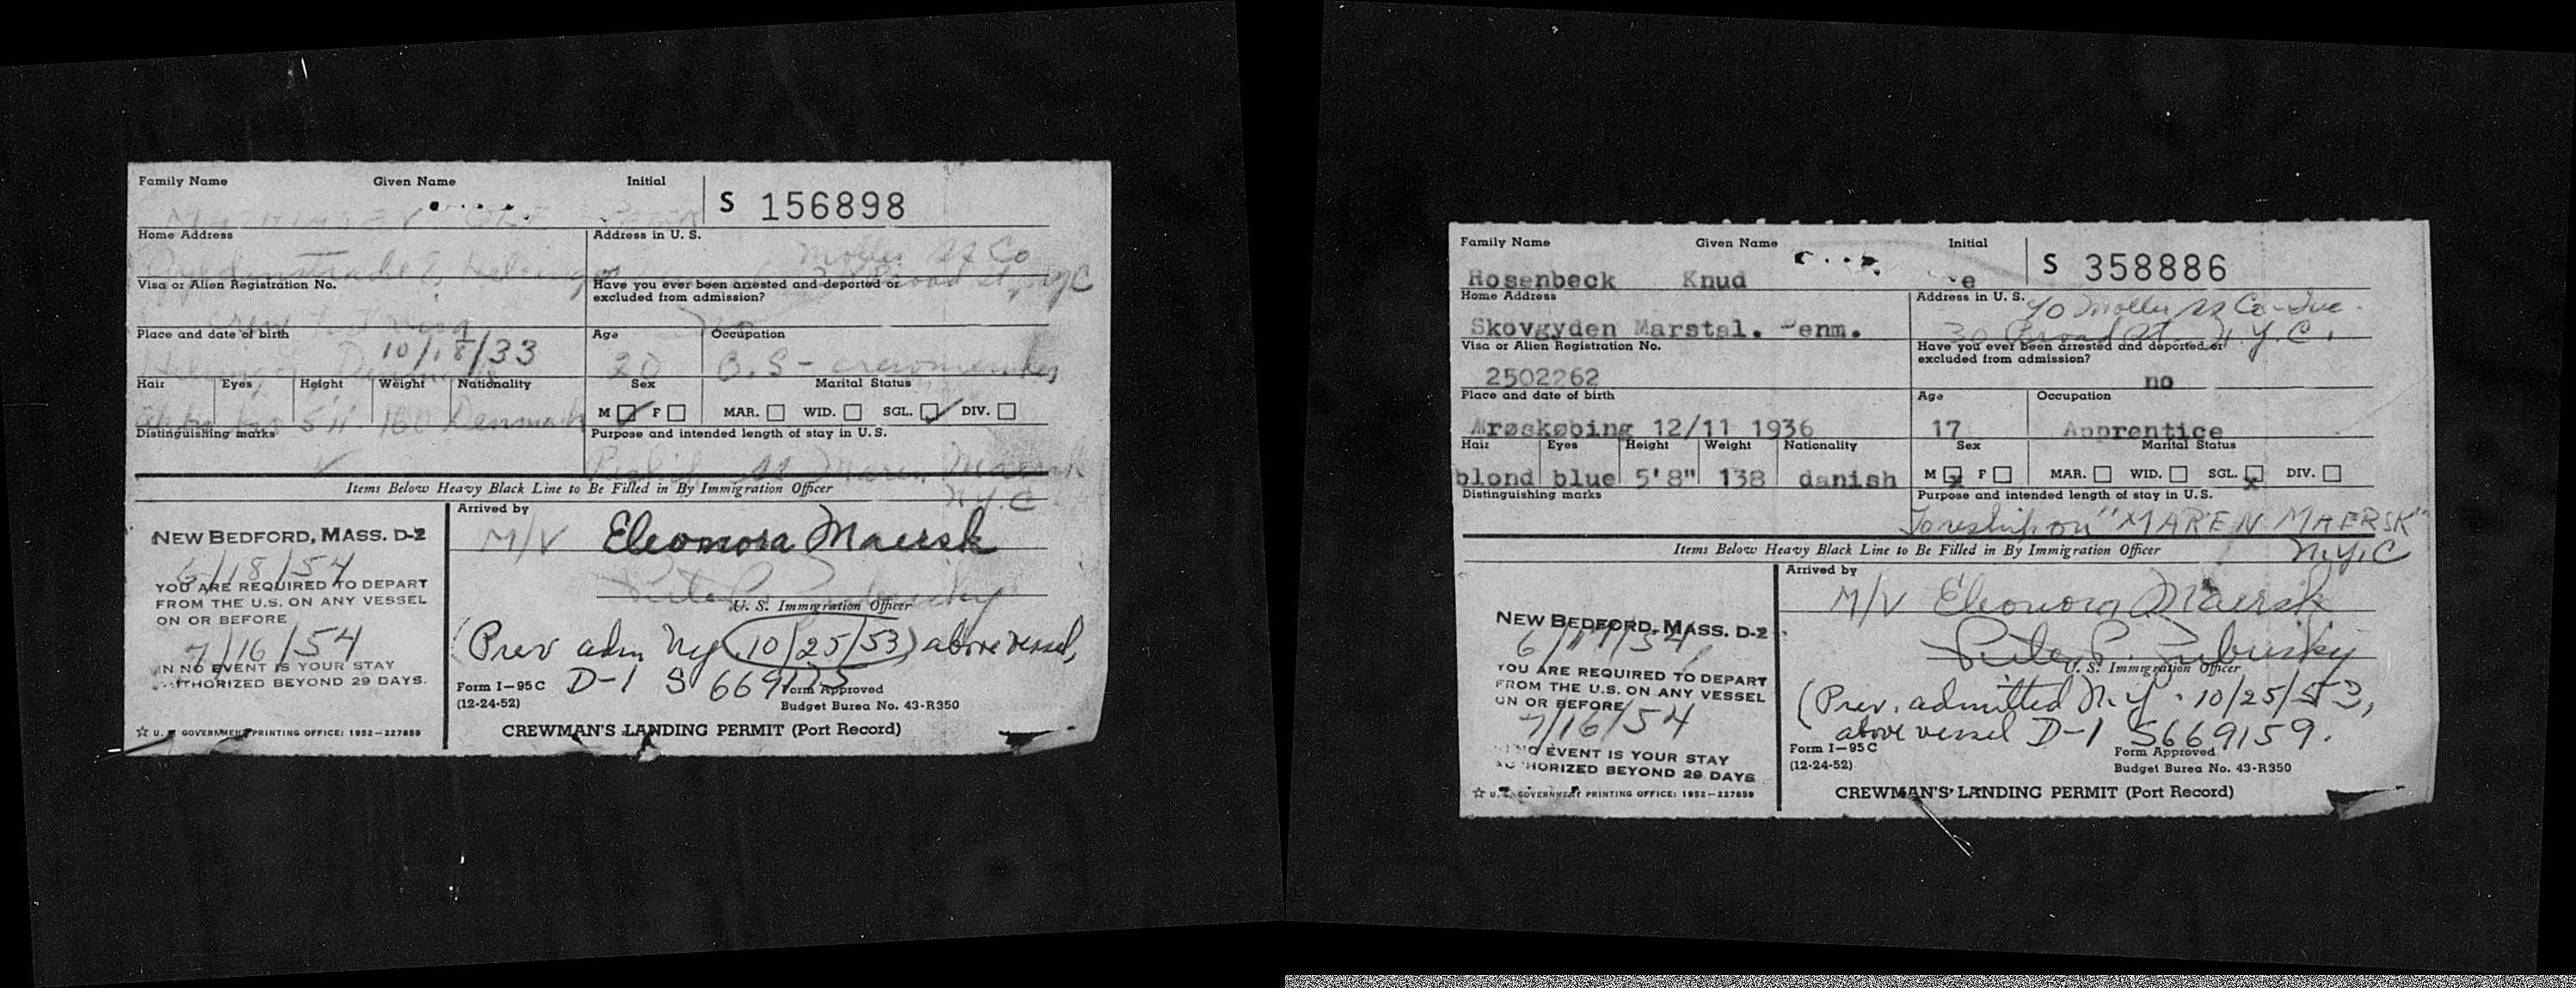 Family Name Given Name Initial
S 156898
Home Address Address in U. S.
Moller SS Co
Visa or Alien Registration No. Have you ever been arrested and deported or
excluded from admission?
Place and date of birth Age Occupation
10/18/33 20 B.S - crewmember
Hair Eyes Height Weight Nationality Sex Marital Status
5'11 160 Denmark M F MAR. WID. SGL. DIV.
Distinguishing marks Purpose and intended length of stay in U.S.
SS Maren Maersk
N.Y.C
Items Below Heavy Black Line to Be Filled in By Immigration Officer
Arrived by
M/V Eleonora Maersk
NEW BEDFORD, MASS. D-2
6/18/54
YOU ARE REQUIRED TO DEPART
FROM THE U.S. ON ANY VESSEL
ON OR BEFORE
7/16/54
IN NO EVENT IS YOUR STAY
AUTHORIZED BEYOND 29 DAYS.
U. S. Immigration Officer
(Prev adm NY 10/25/53) above vessel,
D-1 S 669175
Form I-95C
(12-24-52)
Form Approved
Budget Burea No. 43-R350
☆ U. S. GOVERNMENT PRINTING OFFICE: 1952-227859
CREWMAN'S LANDING PERMIT (Port Record)
Family Name Given Name Initial
S 358886
Rosenbeck Knud e
Home Address Address in U. S.
Skovgyden Marstal. Denm.
℅ Moller SS Co-Inc.
30 Broad St. N.Y.C.
Visa or Alien Registration No. Have you ever been arrested and deported or
excluded from admission?
2502262 no
Place and date of birth Age Occupation
Ærøskøbing 12/11 1936 17 Apprentice
Hair Eyes Height Weight Nationality Sex Marital Status
blond blue 5'8" 138 danish M x F MAR. WID. SGL. x DIV.
Distinguishing marks Purpose and intended length of stay in U.S.
To reship on "MAREN MAERSK"
N.Y.C
Items Below Heavy Black Line to Be Filled in By Immigration Officer
Arrived by
M/V Eleonora Maersk
NEW BEDFORD, MASS. D-2
YOU ARE REQUIRED TO DEPART
FROM THE U.S. ON ANY VESSEL
ON OR BEFORE
7/16/54
IN NO EVENT IS YOUR STAY
AUTHORIZED BEYOND 29 DAYS
U. S. Immigration Officer
(Prev. admitted N.Y. 10/25/53,
above vessel D-1 S669159.
Form I-95C
(12-24-52)
Form Approved
Budget Burea No. 43-R350
☆ U. S. GOVERNMENT PRINTING OFFICE: 1952-227859
CREWMAN'S LANDING PERMIT (Port Record)